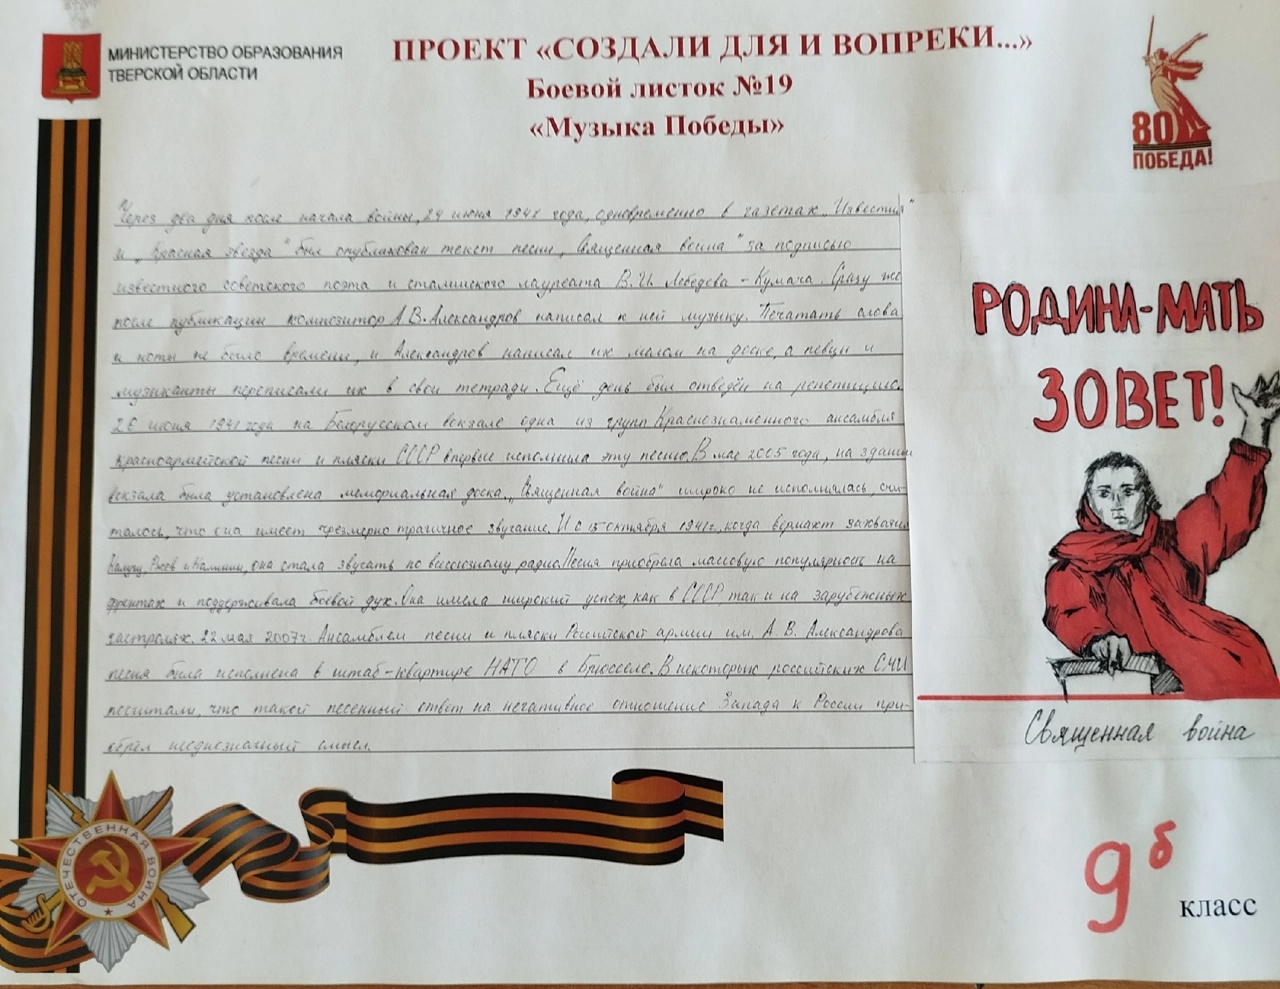 МИНИСТЕРСТВО ОБРАЗОВАНИЯ
ТВЕРСКОЙ ОБЛАСТИ
ПРОЕКТ «СОЗДАЛИ ДЛЯ И ВОПРЕКИ...»
Боевой листок №19
«Музыка Победы»
80
ПОБЕДА!
Через два дня после начала войны, 24 июня 1941 года, одновременно в газетах „Известия“
и „Красная звезда“ был опубликован текст песни „Священная война“ за подписью
известного советского поэта и сталинского лауреата В.И. Лебедева-Кумача. Сразу же
после публикации композитор А.В. Александров написал к ней музыку. Печатать слова
и ноты не было времени, и Александров написал их мелом на доске, а певцы и
музыканты переписали их в свои тетради. Ещё день был отведён на репетицию.
26 июня 1941 года на Белорусском вокзале одна из групп Краснознаменного ансамбля
красноармейской песни и пляски СССР впервые исполнила эту песню. В мае 2005 года, на здании
вокзала была установлена мемориальная доска. „Священная война“ широко не исполнялась, счи-
талось, что она имеет чрезмерно трагичное звучание. И с 15 октября 1941г., когда вермахт захватил
Калугу, Ржев и Калинин, она стала звучать по всесоюзному радио. Песня приобрела массовую популярность на
фронтах и поддерживала боевой дух. Она имела широкий успех, как в СССР, так и на зарубежных
гастролях. 22 мая 2007г. Ансамблем песни и пляски Российской армии им. А.В. Александрова
песня была исполнена в штаб-квартире НАТО в Брюсселе. В некоторых российских СМИ
посчитали, что такой песенный ответ на негативное отношение Запада к России при-
обрёл неоднозначный смысл.
РОДИНА-МАТЬ
ЗОВЕТ!
Священная война
ОТЕЧЕСТВЕННАЯ ВОЙНА
9б класс